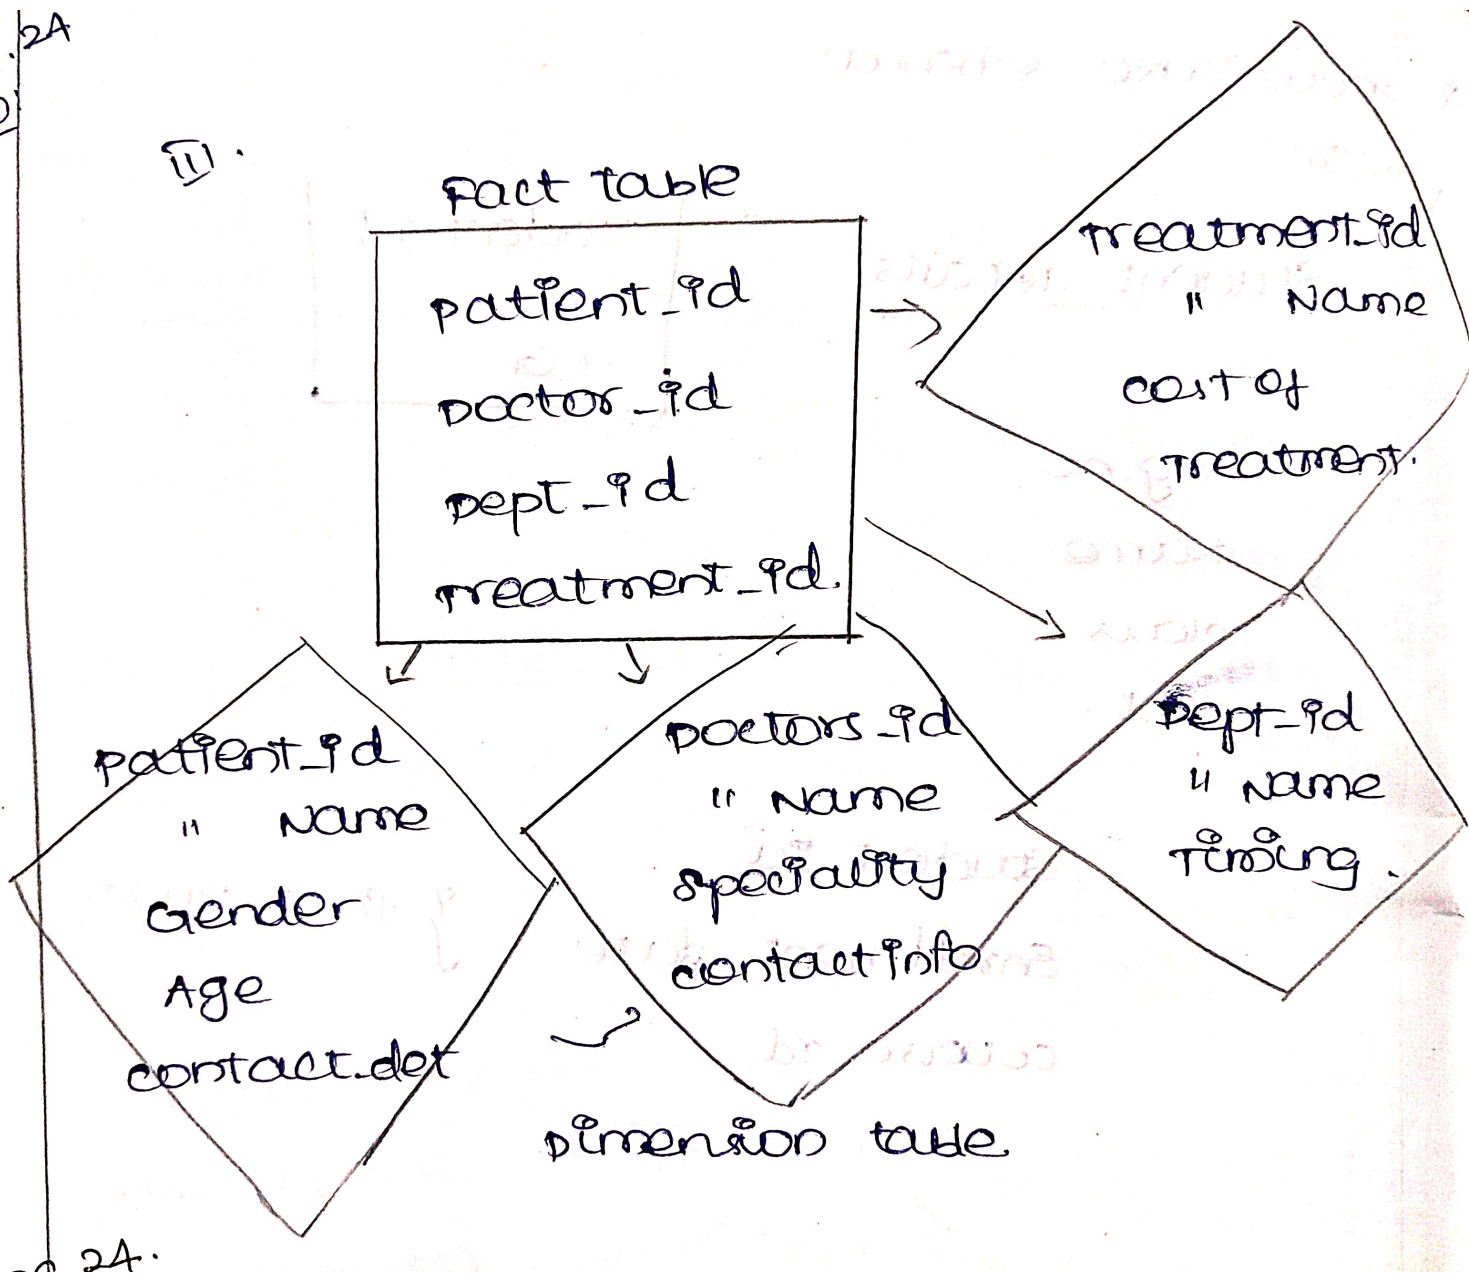 .24
III.
Fact table
patient_id
Doctor_id
Dept_id
Treatment_id.
Treatment_id
" Name
cost of
Treatment.
patient_id
" Name
Gender
Age
contact.det
Doctors_id
" Name
speciality
contact info
Dept_id
" Name
Timing.
Dimension table
24.